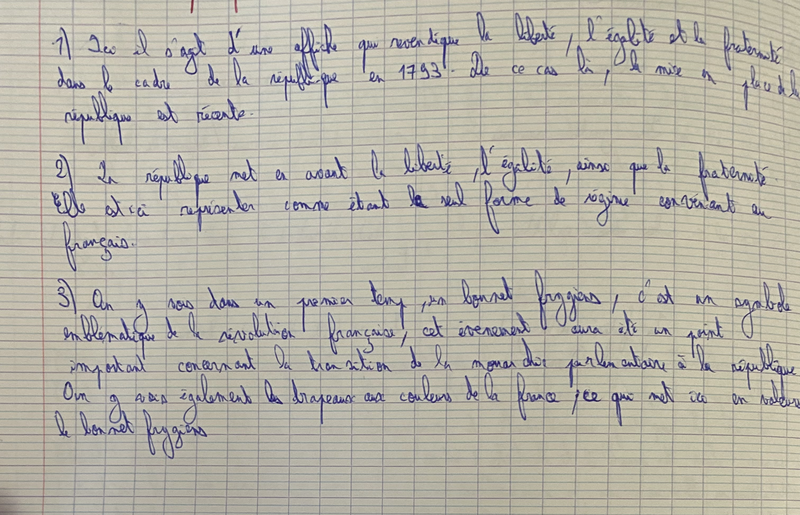 1) Ici il s'agit d'une affiche qui revendique la liberté, l'égalité et la fraternité
dans le cadre de la république en 1793. De ce cas là, la mise en place de la
république est récente.
2) La république met en avant la liberté, l'égalité, ainsi que la fraternité
Elle est ici représenter comme étant le seul forme de régime convenant au
français.
3) On y vois dans un premier temp, un bonnet frygiens, c'est un symbole
emblématique de la révolution française, cet évènement aura été un point
important concernant la transition de la monarchie parlementaire à la république
On y vois également les drapeaux aux couleurs de la france, ce qui met ici en valeur
le bonnet frygiens